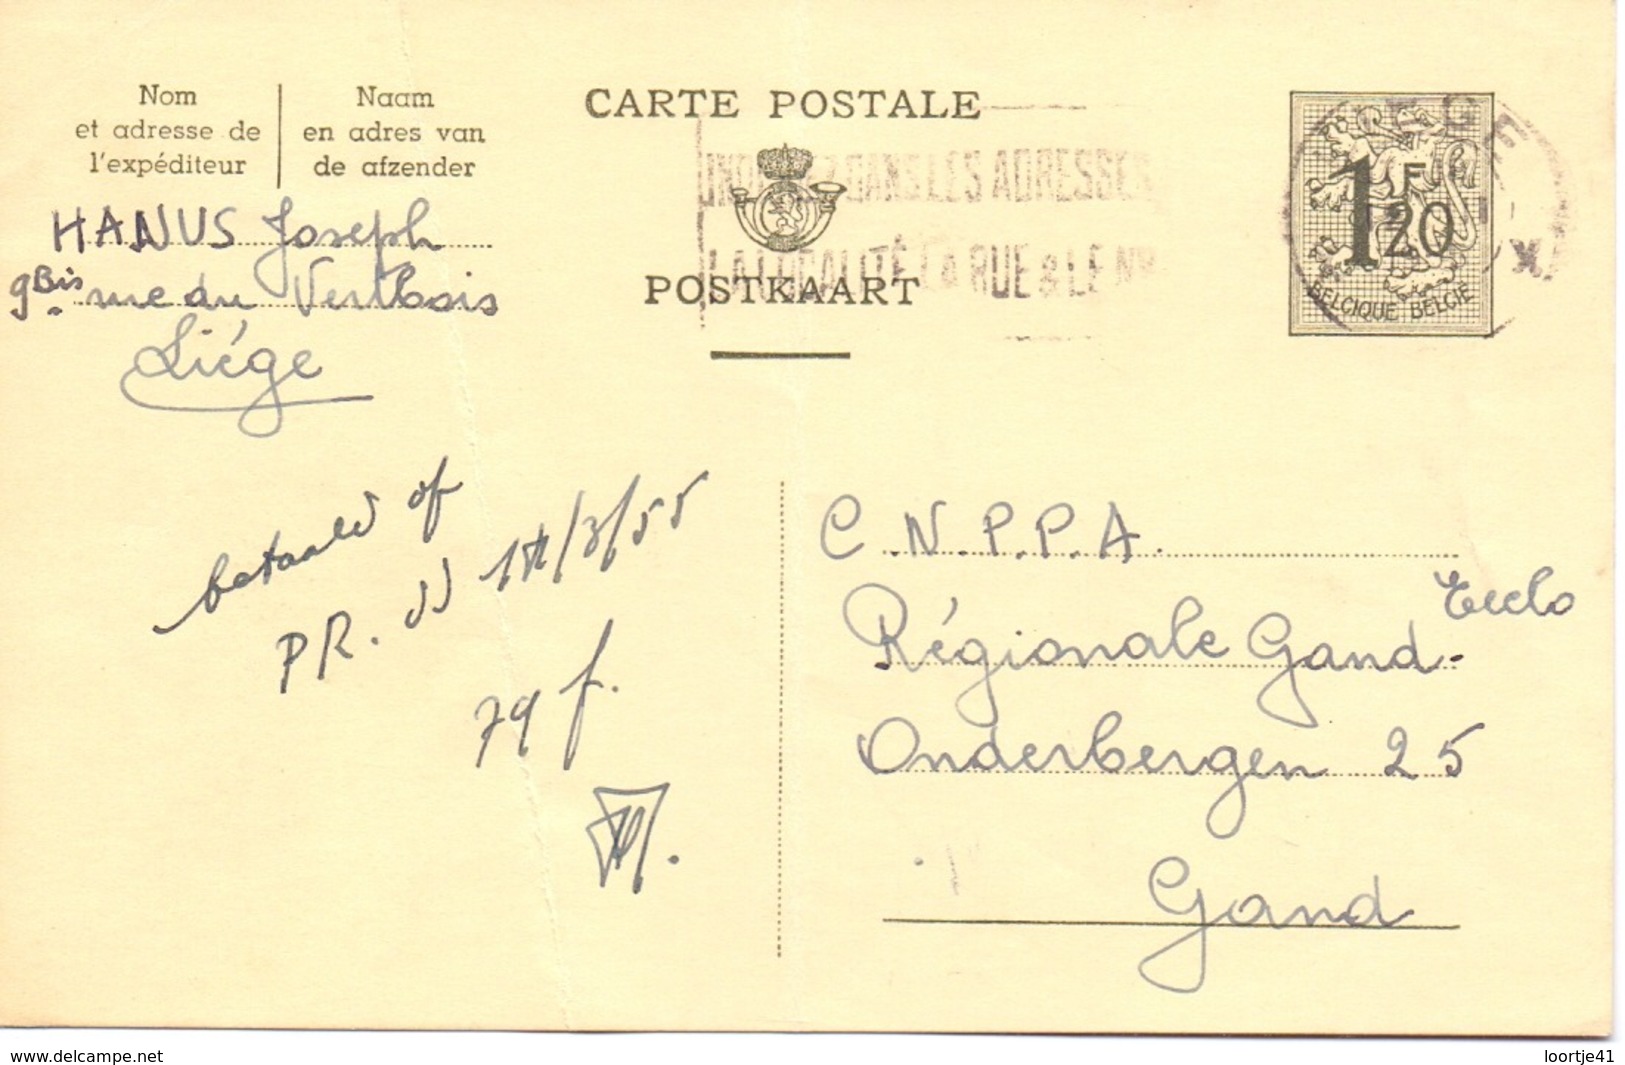 Nom
et adresse de
l'expéditeur
Naam
en adres van
de afzender
CARTE POSTALE
POSTKAART
DANS LES ADRESSES
LA LOCALITÉ LA RUE & LE N
1 F
20
BELGIQUE BELGIE
HANUS Joseph
9 Bis rue du Vertbois
Liége
betaald of
PR. 3/55
79 f.
C.N.P.P.A.
Régionale Gand-
Eeclo
Onderbergen 25
Gand
www.delcampe.net
loortje41